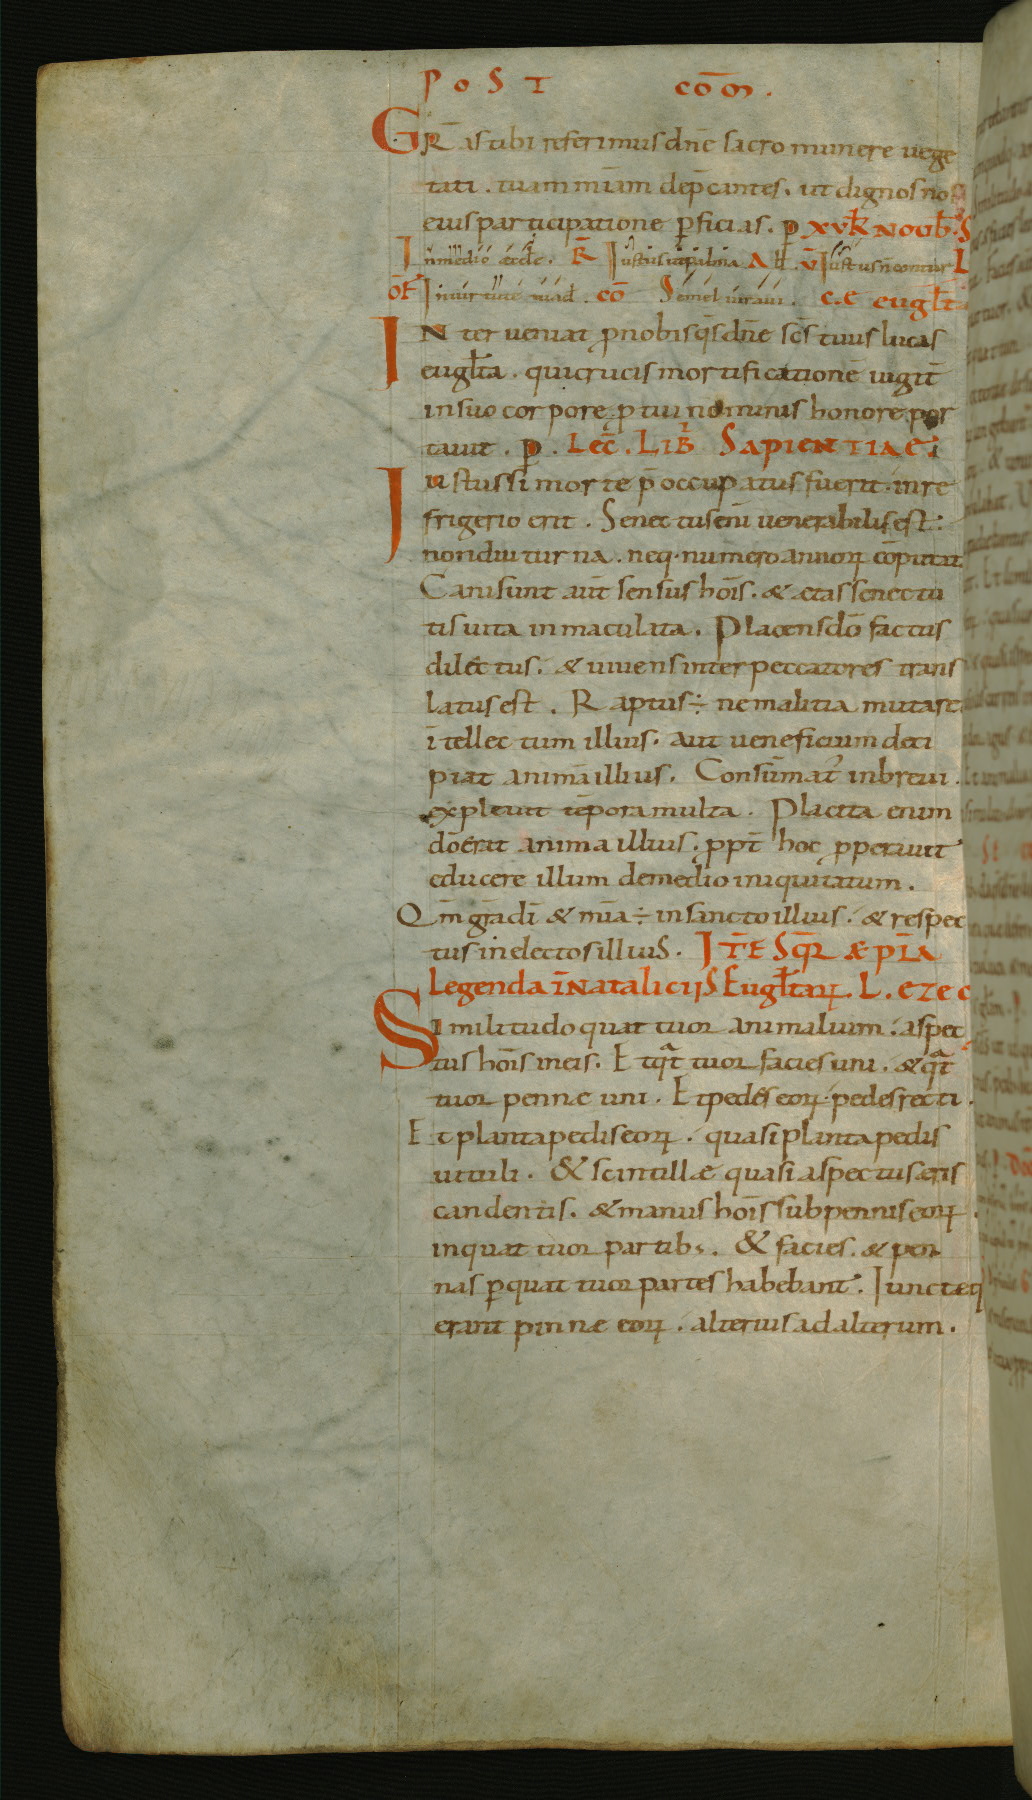 POST COM̄.
GR̄as tibi referimus dn̄e sacro munere uege
tati. tuam miām dep̄cantes. ut dignos nos
eius participatione p̄ficias. p̄ XV KL NOUB. S
In medio eccle. R̄ Iustus ut palma Al. V̄ Iustus n̄ conturb L
OF̄ In uirtute tua d. CŌ Semel iuraui. C.C EUGL̄TA
INter ueniat p̄ nobis qs̄ dn̄e scs̄ tuus lucas
eugl̄ta. qui crucis mortificationē iugit̄
in suo corpore p̄ tui nominis honore por
tauit. p̄. LEC̄. LIB̄ SAPIENTIAE
Iustus si morte p̄occupatus fuerit. in re
frigerio erit. Senectus enī uenerabilis est.
non diuturna. neq. numero annorꝝ cōputat
Cani sunt aut̄ sensus hōis. & aetas senectu
tis uita inmaculata. Placens dō factus
dilectus. & uiuens inter peccatores trans
latus est. Raptus ÷ ne malitia mutaret
ītellectum illius. aut ne fictium deci
piat animā illius. Consūmat' in breui.
expleuit tēpora multa. Placita enim
dō erat anima illius. ppt̄ hoc pperauit
educere illum de medio iniquitatum.
Qm̄ grā dī & mīa ÷ in sancto illius. & respec
tus in electos illius. ITĒ SQR̄ AEPL̄A
Legenda īNataliciis Eugl̄tarꝝ. L. EZEC
Similitudo quattuor animalium. aspec
tus hōis in eis. Et qāttuor facies uni. & qāt
tuor pennae uni. Et pedes eorꝝ. pedes recti.
Et planta pedis eorꝝ. quasi planta pedis
uituli. & scintillae quasi aspectus aeris
candentis. & manus hōis sub pennis eorꝝ.
in quattuor partib;. & facies. & pen
nas p̄ quattuor partes habebant. Iunctaeq
erant pinnae eorꝝ. alterius ad alterum.